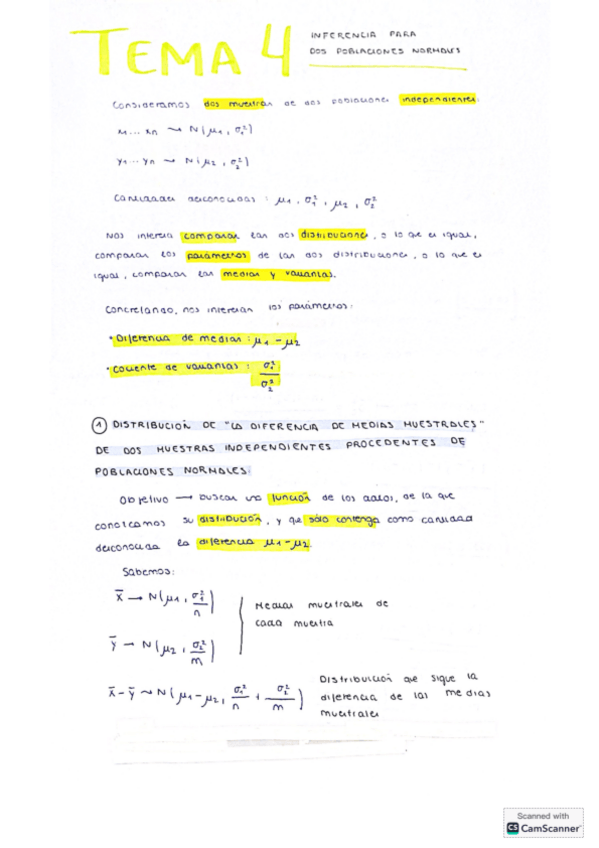 TEMA 4
INFERENCIA PARA
DOS POBLACIONES NORMALES
Consideramos dos muestras de dos poblaciones independientes.
x1... xn ~ N(μ1, σ1²)
y1... yn ~ N(μ2, σ2²)
Cantidades desconocidas : μ1, σ1², μ2, σ2²
Nos interesa comparar las dos distribuciones, o lo que es igual,
comparar los parámetros de las dos distribuciones, o lo que es
igual, comparar las medias y varianzas.
Concretando, nos interesan los parámetros:
• Diferencia de medias : μ1 - μ2
• Cociente de varianzas : σ1²/σ2²
① DISTRIBUCIÓN DE "LA DIFERENCIA DE MEDIAS MUESTRALES"
DE DOS MUESTRAS INDEPENDIENTES PROCEDENTES DE
POBLACIONES NORMALES:
Objetivo → buscar una función de los datos, de la que
conozcamos su distribución, y que sólo contenga como cantidad
desconocida la diferencia μ1-μ2.
Sabemos:
x̄ → N(μ1, σ1²/n)
ȳ → N(μ2, σ2²/m)
Medias muestrales de
cada muestra
x̄-ȳ ~ N(μ1-μ2, σ1²/n + σ2²/m)
Distribución que sigue la
diferencia de las medias
muestrales
Scanned with
CS CamScanner